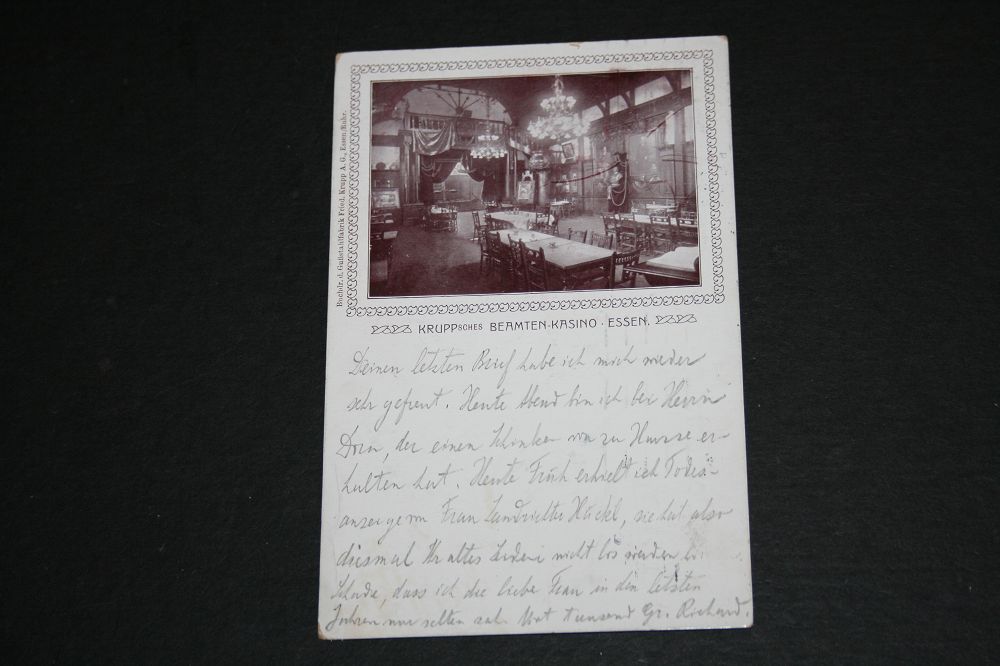 Buchdr. d. Gußstahlfabrik Fried. Krupp A. G., Essen/Ruhr.
KRUPPSCHES BEAMTEN-KASINO · ESSEN.
Deinen letzten Brief habe ich mich wieder
sehr gefreut. Heute Abend bin ich bei Herrn
Dorn, der einen Schinken von zu Hause er-
halten hat. Heute Früh erhielt ich Todes-
anzeige von Frau Landrichter Häckl, sie hat also
diesmal Ihr altes nicht los werden
Schade, dass ich die liebe Frau in den letzten
Jahren nur selten sah. Mit tausend Gr. Richard.